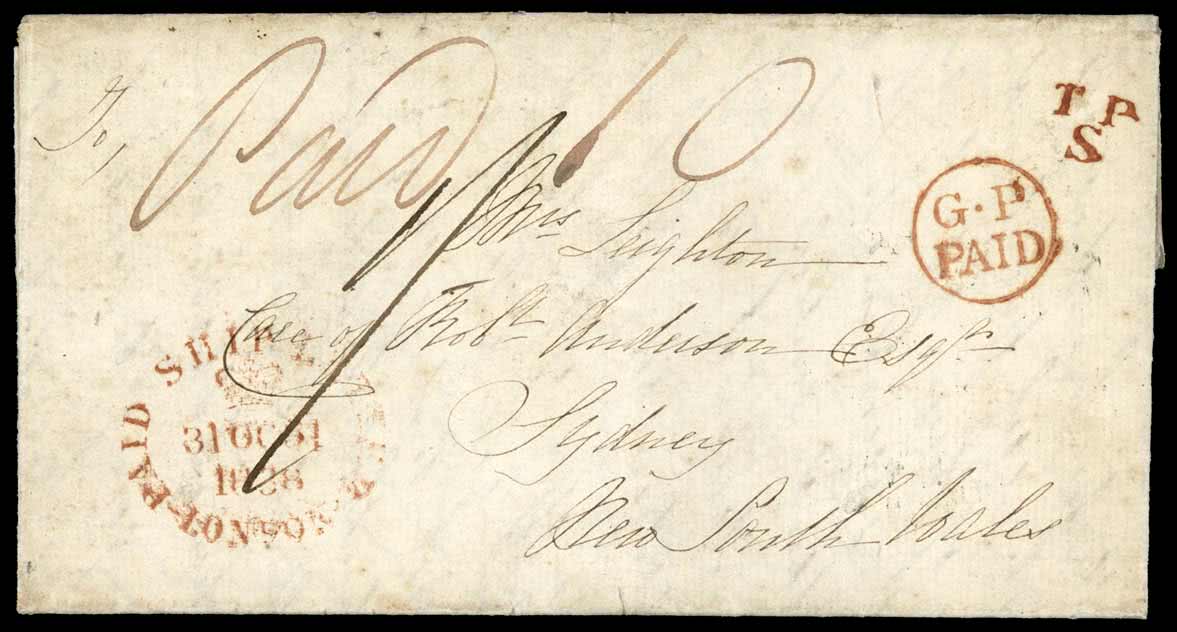 To,
Paid 10
T P
S
G.P
PAID
Mrs Leighton
Care of Robt Anderson Esqr
Sydney
New South Wales
PAID SHIP
31 OC 31
1838
LONDON